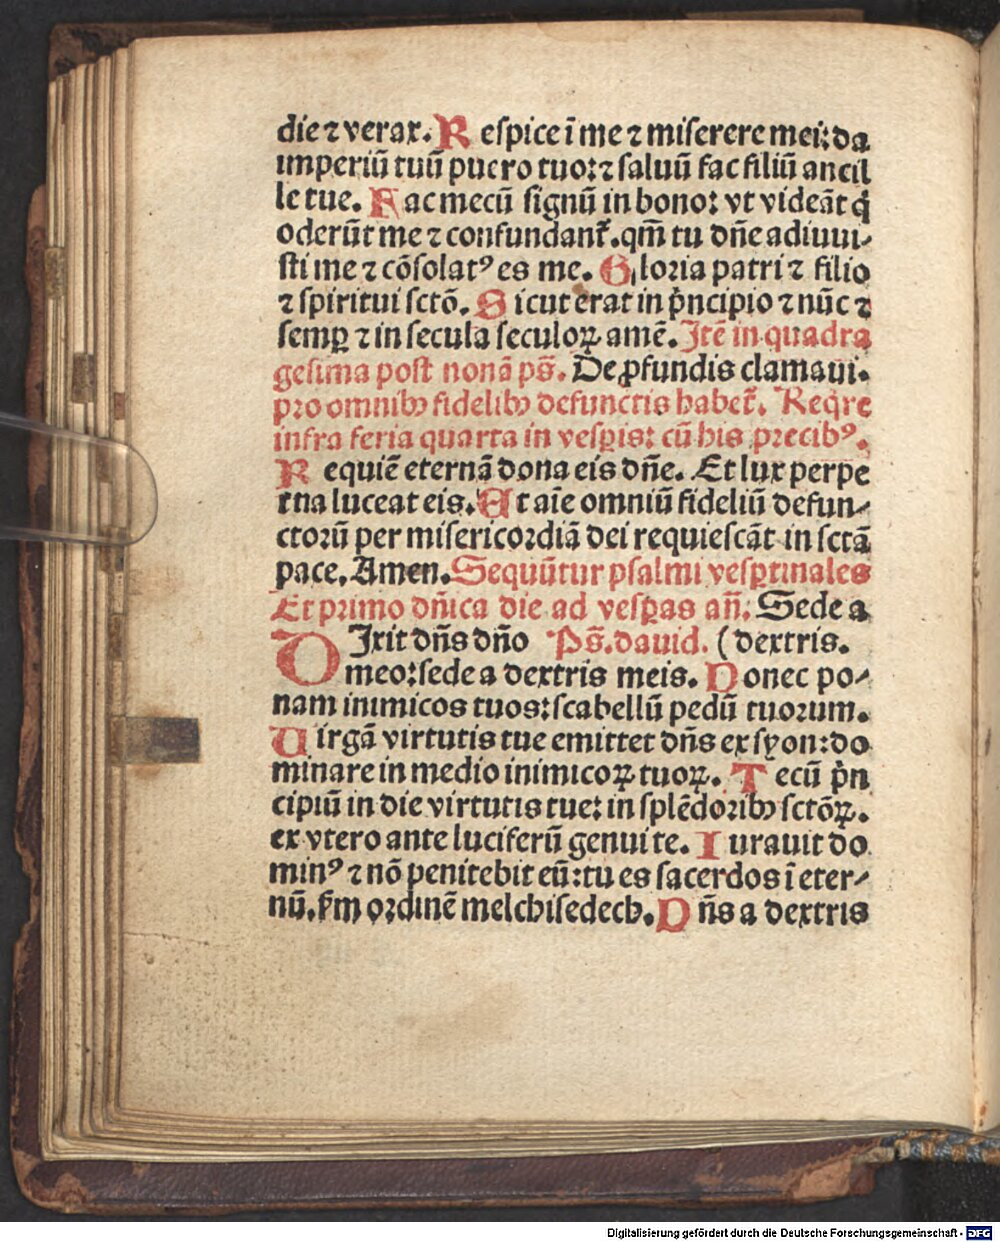 die ⁊ verax. Reſpice ī me ⁊ miſerere mei: da
imperiū tuū puero tuo: ⁊ ſaluū fac filiū ancil
le tue. Fac mecū ſignū in bono: vt videāt q̇
oderūt me ⁊ confundant᷑. qm̄ tu dn̄e adiuui⸗
ſti me ⁊ cōſolatꝰ es me. Gloria patri ⁊ filio
⁊ ſpiritui ſctō. Sicut erat in p̄ncipio ⁊ nūc ⁊
ſemꝑ ⁊ in ſecula ſeculoꝝ amē. Itē in quadra
geſima poſt nonā pš. De ꝓfundis clamaui.
pro omnibꝰ fidelibꝰ defunctis habet᷑. Reqre
infra feria quarta in veſꝑis: cū his precibꝰ.
Requiē eternā dona eis dn̄e. Et lux perpe
tna luceat eis. Et aīe omniū fideliū defun⸗
ctorū per miſericordiā dei requieſcāt in ſctā
pace. Amen. Sequūtur pſalmi veſꝑtinales
Et primo dn̄ica die ad veſꝑas an̄. Sede a
DIxit dn̄s dn̄o Pš. dauid. (dextris.
meo: ſede a dextris meis. Donec po⸗
nam inimicos tuos: ſcabellū pedū tuorum.
Uirgā virtutis tue emittet dn̄s ex ſyon: do
minare in medio inimicoꝝ tuoꝝ. Tecū p̄n
cipiū in die virtutis tue: in ſplēdoribꝰ ſctōꝝ.
ex vtero ante luciferū genui te. Iurauit do
minꝰ ⁊ nō penitebit eū: tu es ſacerdos ī eter⸗
nū. ẜm ordinē melchiſedech. Dn̄s a dextris
Digitalisierung gefördert durch die Deutsche Forschungsgemeinschaft - DFG